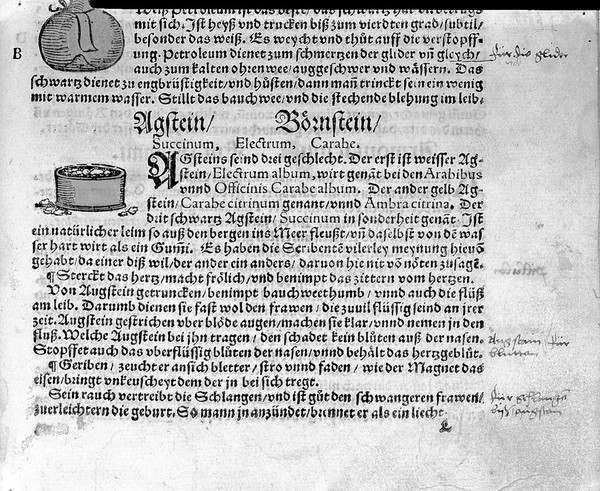 Weiß Petroleum ist das best/ das schwartz hat erdtherdt
mit sich. Ist heyß vnd trucken biß zum vierdten grad/ subtil/
besonder das weiß. Es weycht vnd thüt auff die verstopff-
B
ung. Petroleum dienet zum schmertzen der glider vñ gleych/
für die glider
auch zum kalten ohrenwee/ auggeschwer vnd wässern. Das
schwartz dienet zu engbrüstigkeit/ vnd hüsten/ dann mañ trinckt sein ein wenig
mit warmem wasser. Stillt das bauchwee/ vnd die stechende blehung im leib.
Agstein/ Börnstein/
Succinum, Electrum, Carabe.
AGsteins seind drei geschlecht. Der erst ist weisser Ag-
stein/ Electrum album, wirt genãt bei den Arabibus
vnnd Officinis Carabe album. Der ander gelb Ag-
stein/ Carabe citrinum genant/ vnnd Ambra citrina. Der
drit schwartz Agstein/ Succinum in sonderheit genãt. Ist
ein natürlicher leim so auß den bergen ins Meer fleußt/ vñ daselbst von dẽ was
ser hart wirt als ein Gum̃i. Es haben die Scribentẽ vilerley meynung hieuõ
gehabt/ da einer diß wil/ der ander ein anders/ daruon hie nit võ nöten zusagẽ.
¶ Sterckt das hertz/ macht frölich/ vnd benimpt das zittern vom hertzen.
Von Augstein getruncken/ benimpt bauchweethumb/ vnnd auch die flüß
am leib. Darumb dienen sie fast wol den frawen/ die zuuil flüssig seind an jrer
zeit. Augstein gestrichen vber blöde augen/ machen sie klar/ vnnd nemen jn den
fluß. Welche Augstein bei jhn tragen/ den schadet kein blüten auß der nasen.
Augstain für
Stopffet auch das vberflüssig blüten der nasen/ vnnd behält das hertzgeblüt.
blutten
¶ Geriben/ zeucht er an sich bletter/ stro vnnd faden/ wie der Magnet das
eisen/ bringt vnkeuscheyt dem der jn bei sich tregt.
Sein rauch vertreibt die Schlangen/ vnd ist güt den schwangeren frawen/
zuerleichtern die geburt. So mann jn anzündet/ brinnet er als ein liecht.
augstain